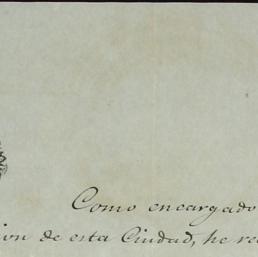 Como encargado
ion de esta Ciudad, he re